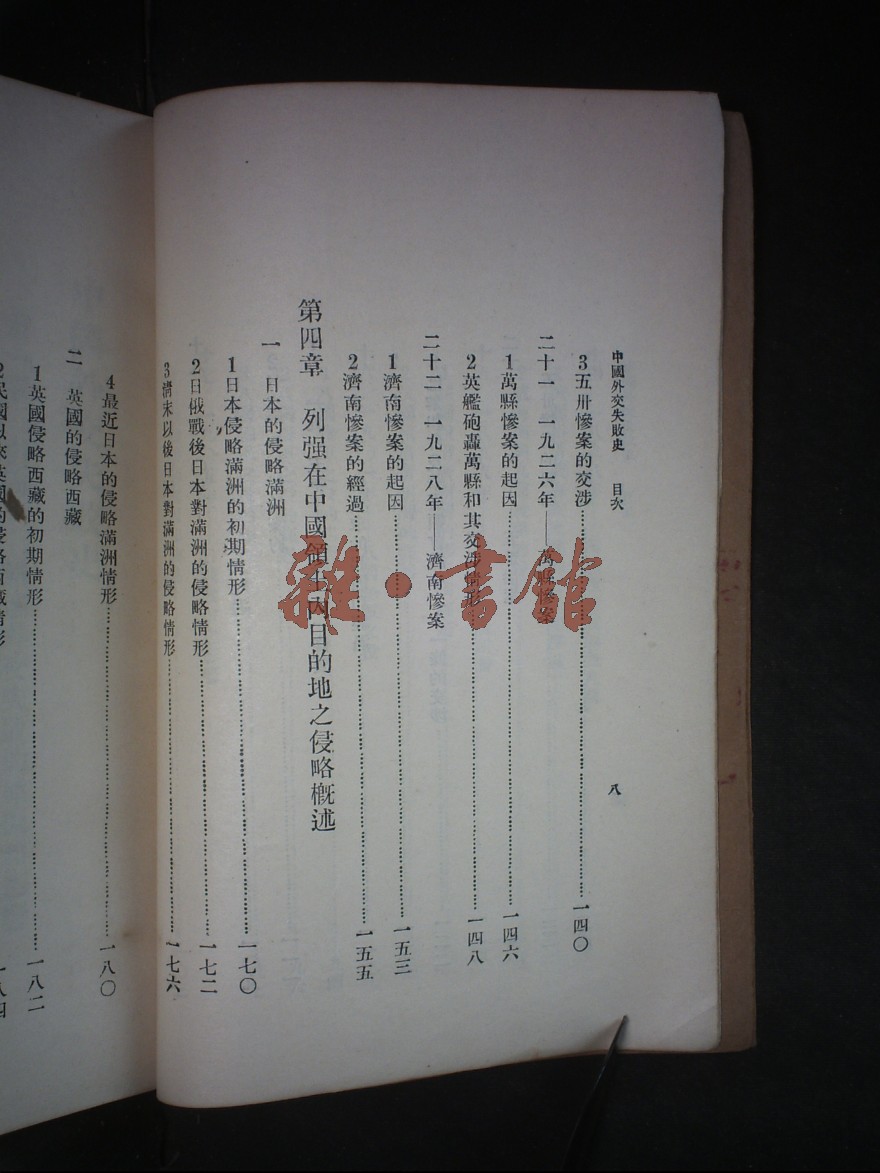 中國外交失敗史　目次　八
3五卅慘案的交涉……一四〇
二十一　一九二六年——萬縣慘案
1萬縣慘案的起因……一四六
2英艦砲轟萬縣和其交涉情形……一四八
二十二　一九二八年——濟南慘案
1濟南慘案的起因……一五三
2濟南慘案的經過……一五五
第四章　列强在中國領土內目的地之侵略概述
一　日本的侵略滿洲
1日本侵略滿洲的初期情形……一七〇
2日俄戰後日本對滿洲的侵略情形……一七二
3淸末以後日本對滿洲的侵略情形……一七六
4最近日本的侵略滿洲情形……一八〇
二　英國的侵略西藏
1英國侵略西藏的初期情形……一八二
2民國以來英國的侵略西藏情形……一八四
雜·書館